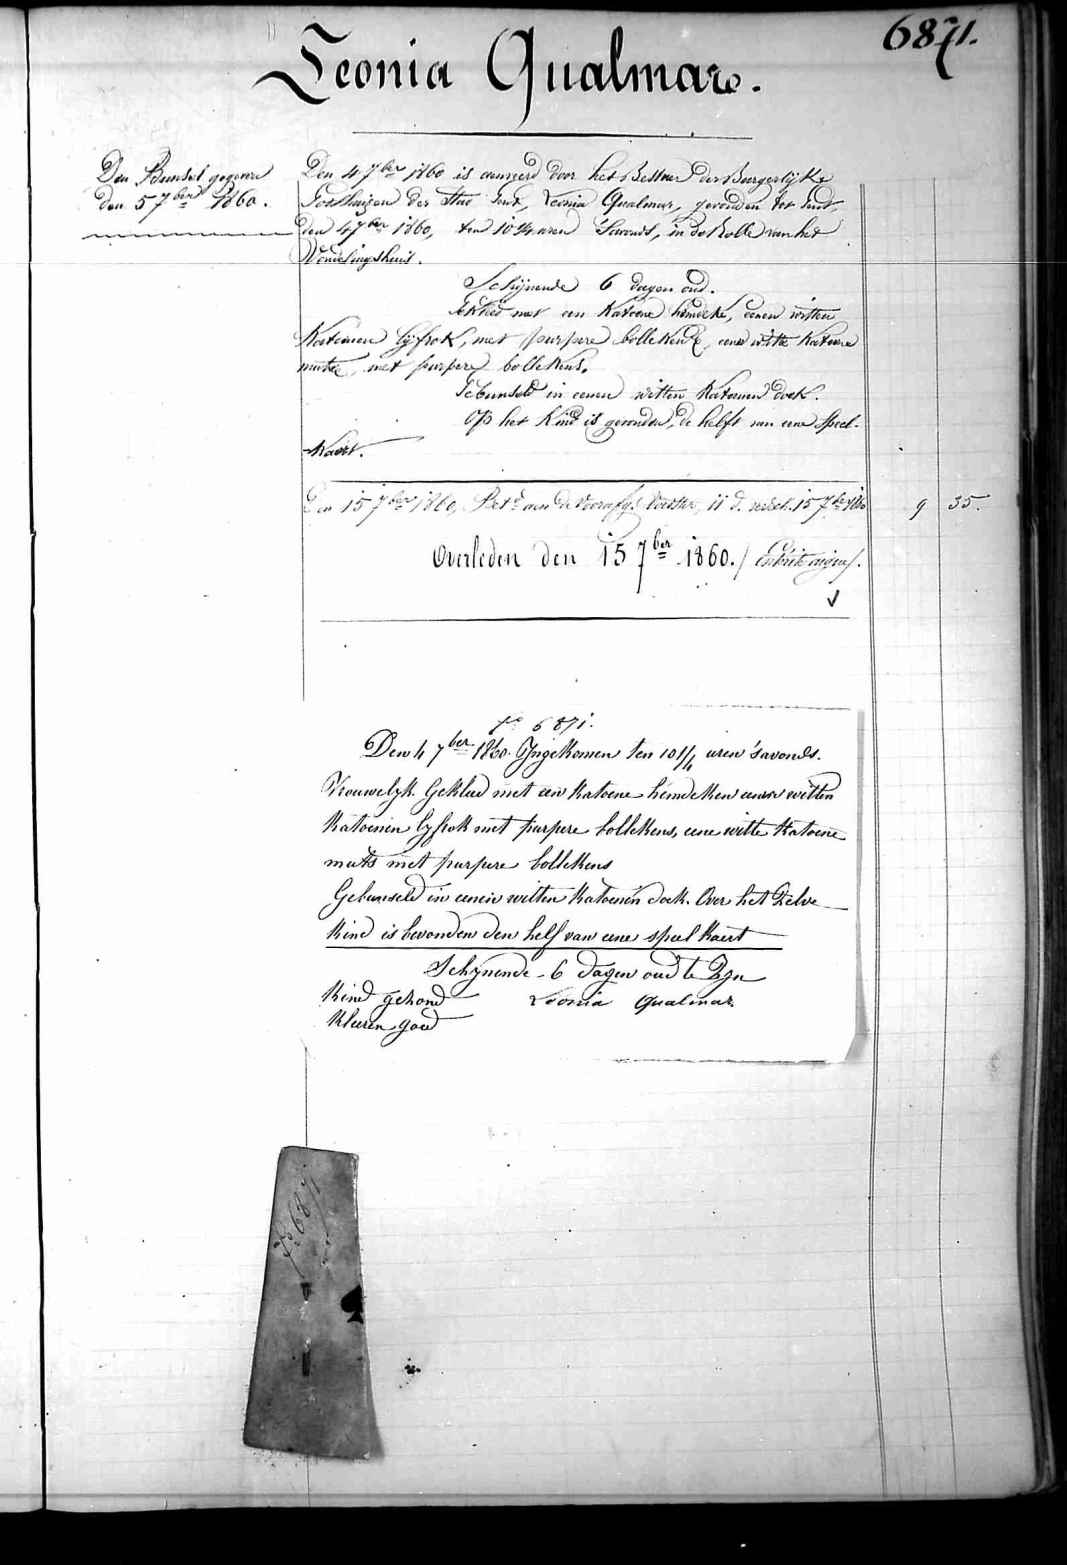 6871.
Leonia Qualmare.
Den Bunsel gegeven
den 5 7ber 1860.
Den 4 7ber 1860 is aenveerd door het Bestuer der Burgerlijke
Godshuizen der Stad Gent, Leonia Qualmar, gevonden tot Gent,
den 4 7ber 1860, ten 10 1/4 uren 'Savonds, in de Rolle van het
Vondelingshuis.
Schijnende 6 dagen oud.
Gekleed met een Katoene hemdeke, eenen witten
Katoenen lijfrok, met purpere bollekens, eene witte Katoene
mutse, met purpere bollekens.
Gebunseld in eenen witten Katoenen doek.
Op het Kind is gevonden, de helft van eene Speel-
Kaert.
Den 15 7ber 1860, Bet.d aen de Voedster, 11 d. 15 7ber 1860 9 35.
Overleden den 15 7ber 1860.
No 6871.
Den 4 7ber 1860. Yngekomen ten 10 1/4 uren 'savonds.
Vrouwelyk Gekleed met een Katoene hemdeken eenen witten
Katoenen lyfrok met purpere bollekens, eene witte Katoene
muts met purpere bollekens
Gebunseld in eenen witten Katoenen doek. Over het Zelve
Kind is bevonden den helf van eene speel Kaert
Schynende 6 dagen oud te Zyn
Kind gezond Leonia Qualmar.
Kleeren goed
No 6871